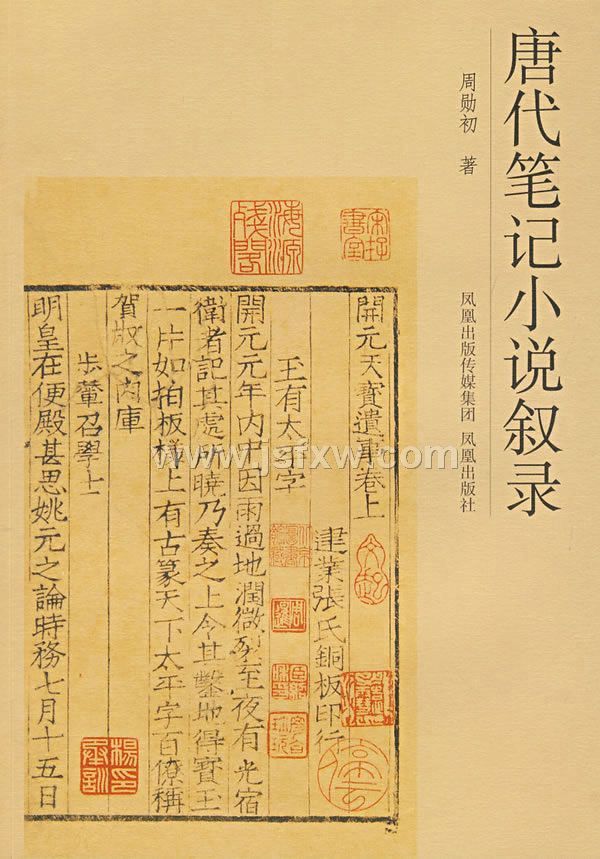 唐代笔记小说叙录
周勋初 著
凤凰出版传媒集团 凤凰出版社
海源殘閣
宋存書室
開元天寶遺事卷上
建業張氏銅板印行
王有太平字
開元元年内中因雨過地潤微裂至夜有光宿
衛者記其處所曉乃奏之上令其鑿地得寶玉
一片如拍板樣上有古篆天下太平字百僚稱
賀收之内庫
步輦召學士
明皇在便殿甚思姚元之論時務七月十五日
楊印承訓
www.jsfxw.com